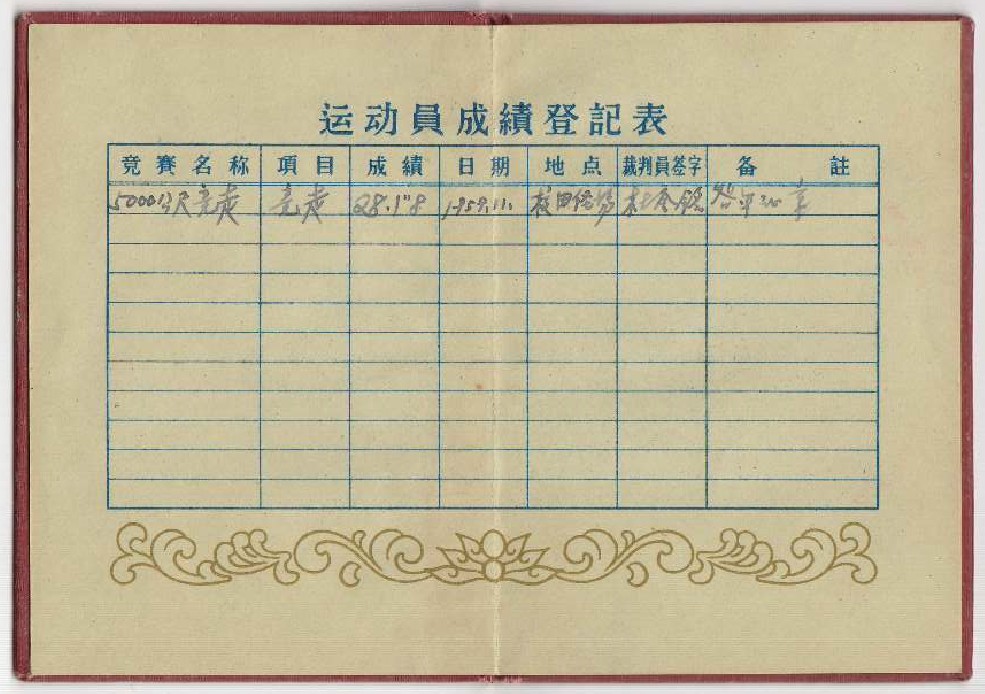 运动員成績登記表
竞賽名称 項目 成績 日期 地点 裁判員签字 备註
5000公尺竞走 竞走 28.1"8 1959.11.